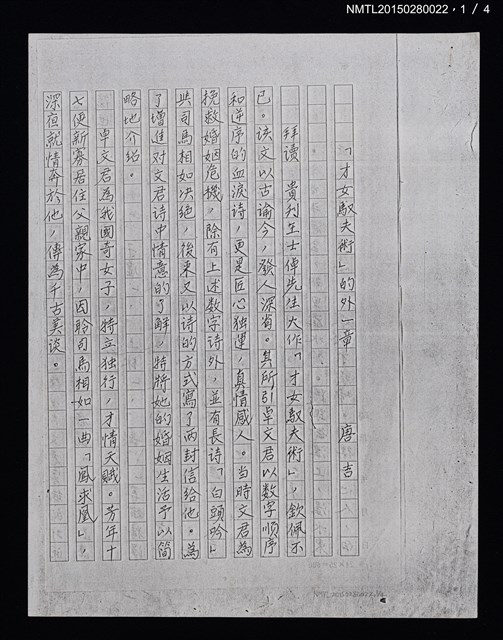 NMTL20150280022，1 / 4
「才女馭夫術」的外一章　　唐吉
拜讀　貴刊生士偉先生大作「才女馭夫術」，欽佩不
已。該文以古諭今，發人深省。其所引卓文君以數字順序
和逆序的血淚詩，更是匠心独運，真情感人。當時文君為
挽救婚姻危機，除有上述数字詩外，並有長詩「白頭吟」
與司馬相如决絕，後來又以詩的方式寫了两封信給他。為
了增進对文君詩中情意的了解，特將她的婚姻生活予以簡
略地介紹。
卓文君為我國奇女子，特立独行，才情天賦。芳年十
七便新寡居住父親家中，因聆司馬相如一曲「鳳求凰」，
深夜就情奔於他，傳為千古美谈。